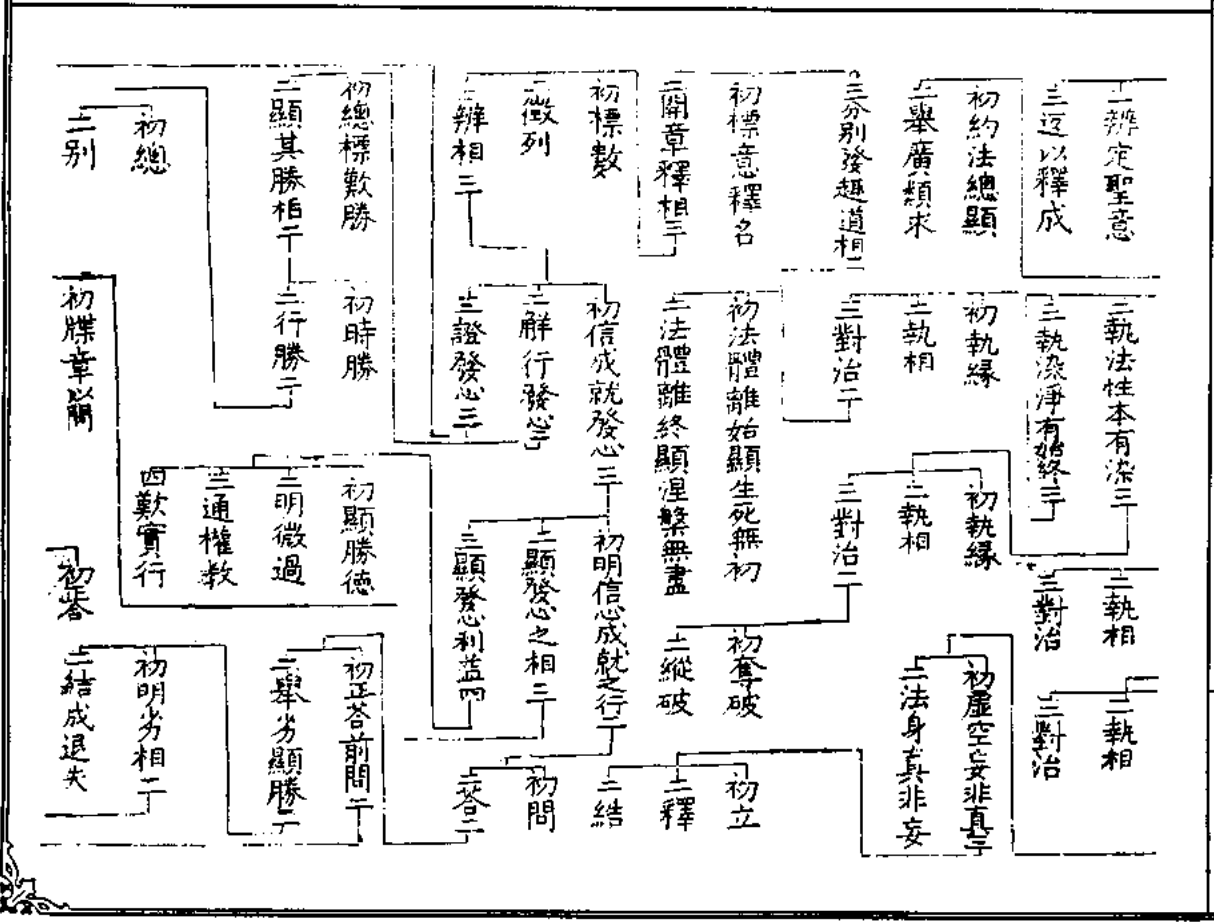 二辨定聖意
三逆以釋成
初約法總顯
二舉廣類求
三分別發趣道相二
初標意釋名
二開章釋相三
初標數
二徵列
三辨相三
初總標歎勝
二顯其勝相二
初總
二別
二執法性本有染三
三執染淨有始終三
初執緣
二執相
三對治二
初法體離始顯生死無初
二法體離終顯涅槃無盡
初信成就發心三
二解行發心二
三證發心三
初時勝
二行勝二
初牒章以問
初執緣
二執相
三對治二
二執相
三對治
初奪破
二縱破
初明信心成就之行二
二顯發心之相三
三顯發心利益四
初顯勝德
二明微過
三通權教
四歎實行
初正答
二執相
三對治
初虛空妄非真三
二法身真非妄
初立
二釋
三結
初問
二答二
初正答前問二
二舉劣顯勝二
初明劣相二
二結成退失